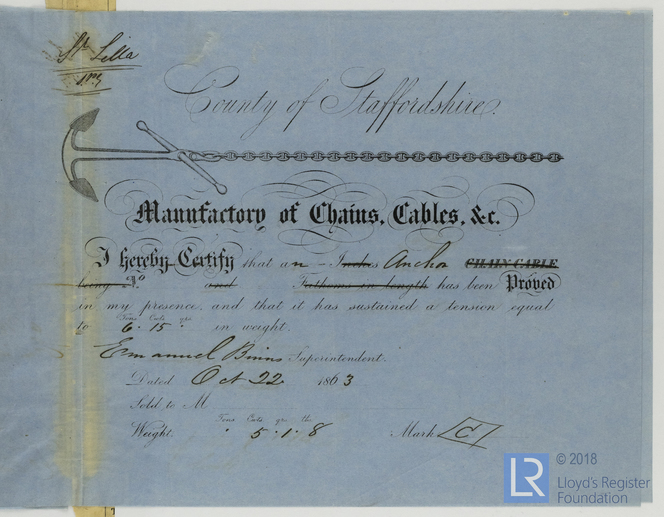 St Lilla
County of Staffordshire.
Manufactory of Chains, Cables, &c.
I hereby Certify that an Inches Anchor CHAIN CABLE
being No and Fathoms in length has been Proved
in my presence, and that it has sustained a tension equal
Tons Cwts qrs
to 6 . 15 . in weight.
Emanuel Binns Superintendent.
Dated Oct 22 1863
Sold to M
Tons Cwts. qrs lbs
Weight. . 5 . 1 . 8 Mark C
LR © 2018
Lloyd's Register
Foundation